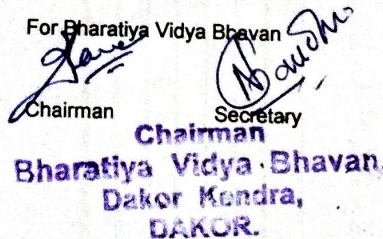 For Bharatiya Vidya Bhavan
Chairman Secretary
Chairman
Bharatiya Vidya Bhavan,
Dakor Kendra,
DAKOR.